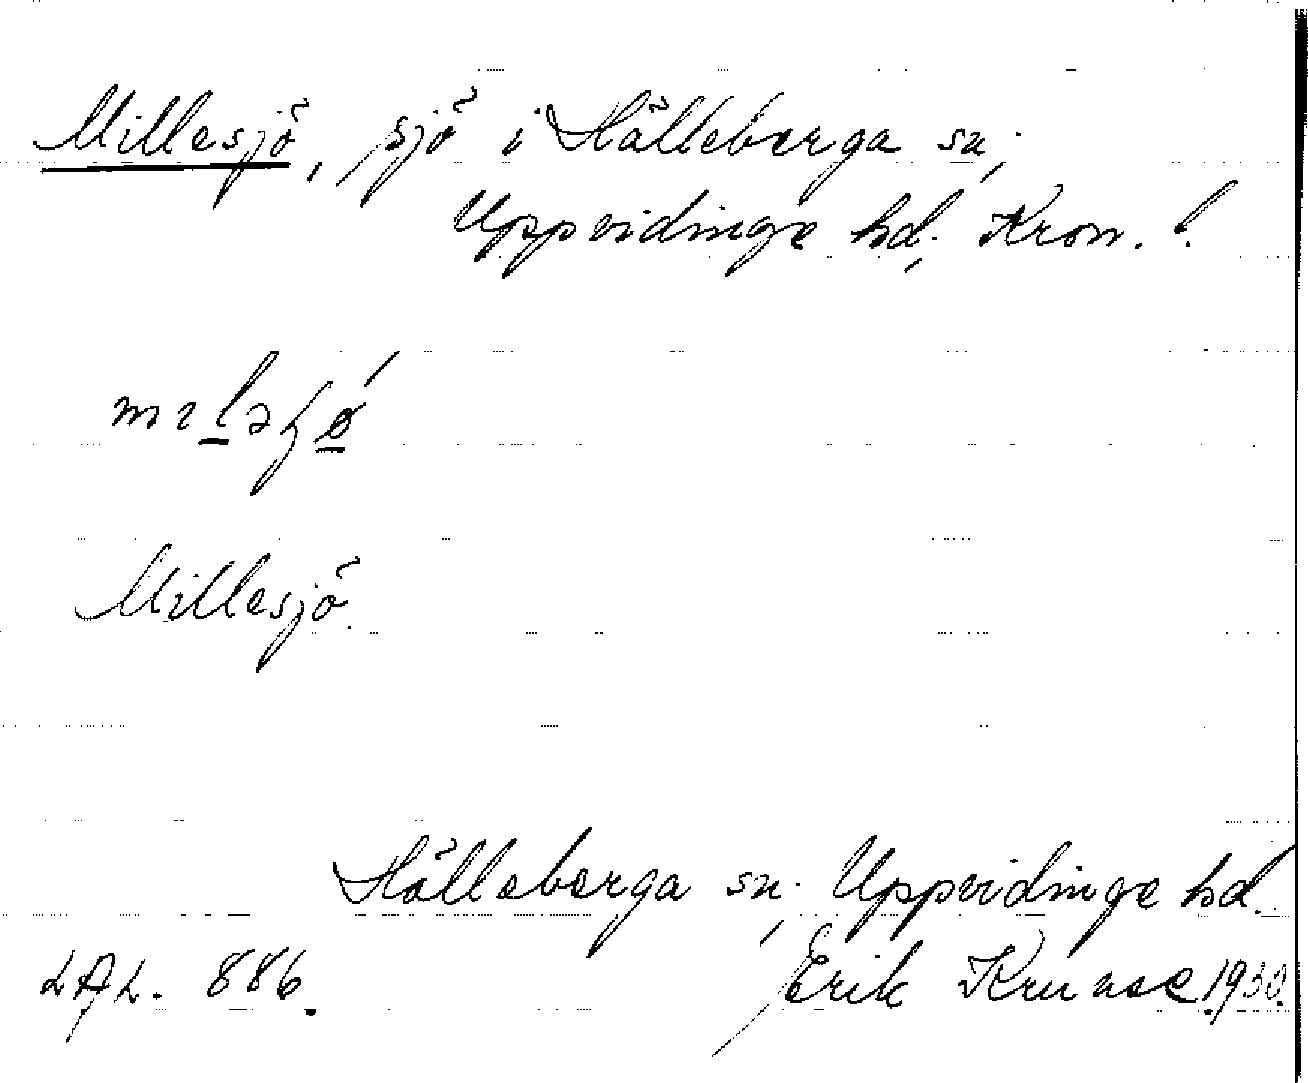 Millesjö, sjö i Hälleberga sn,
Uppvidinge hd, Kron. l.
Millesjö.
Hälleberga sn, Uppvidinge hd.
LAL. 886.
Erik Kruuse 1930.